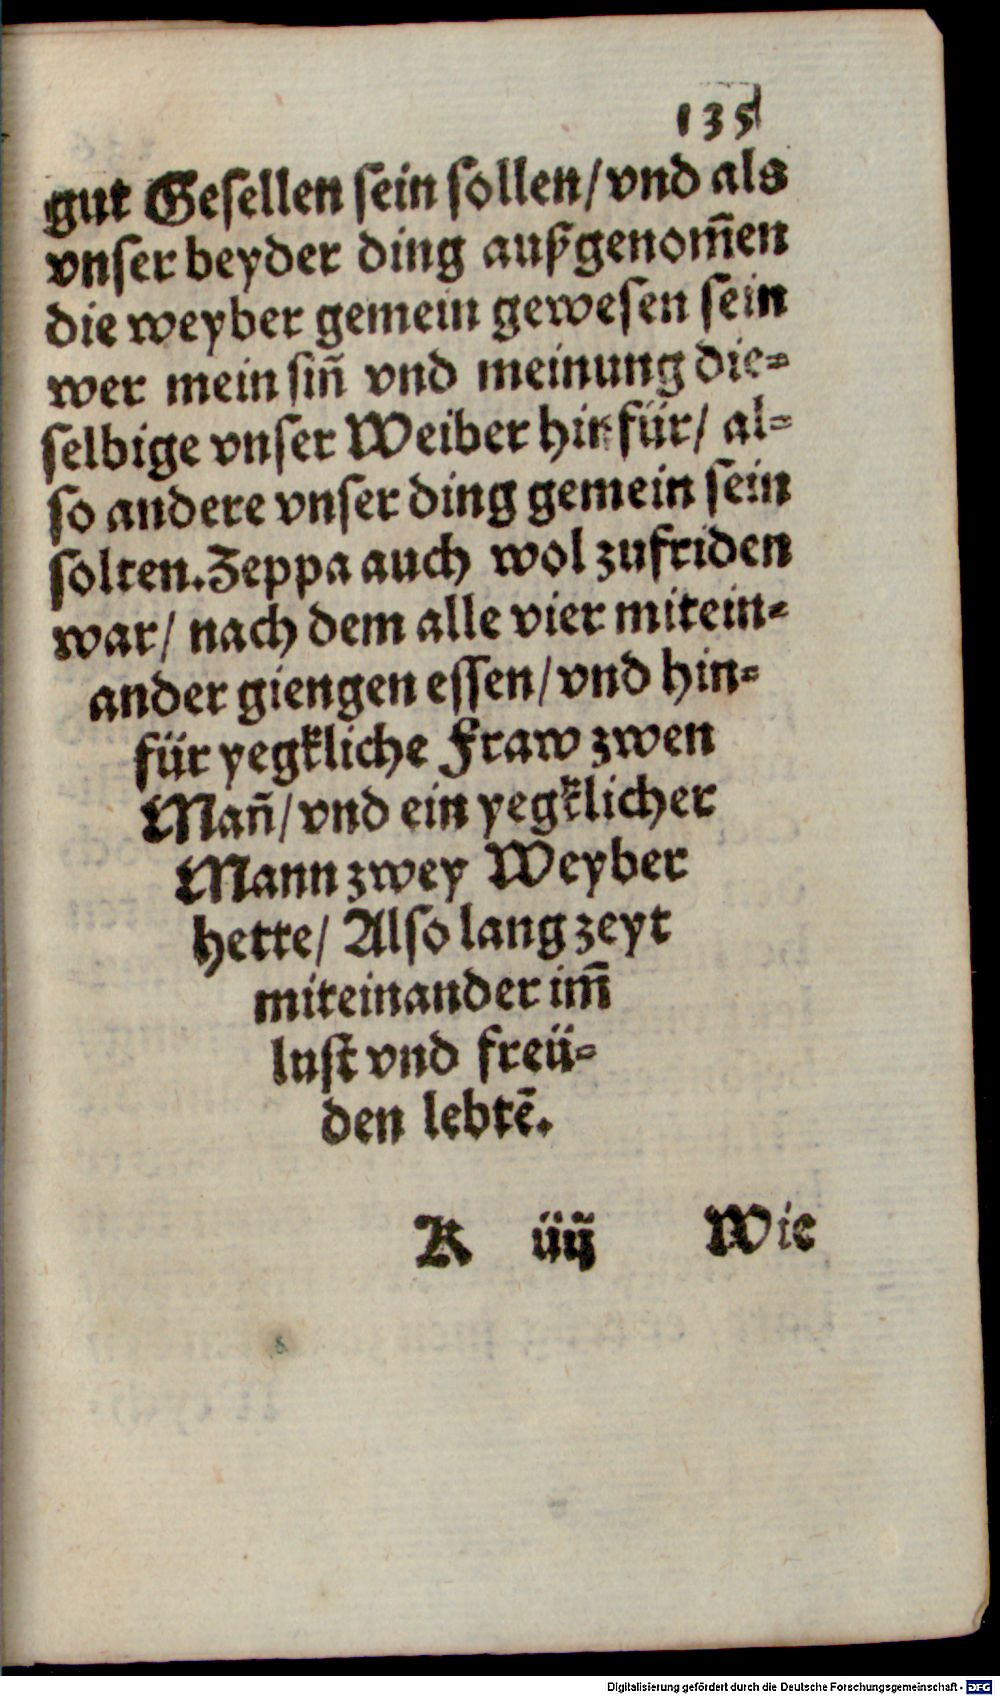 135
gut Gesellen sein sollen/ vnd als
vnser beyder ding außgenom̃en
die weyber gemein gewesen sein
wer mein siñ vnd meinung die-
selbige vnser Weiber hinfür/ al-
so andere vnser ding gemein sein
solten. Zeppa auch wol zufriden
war/ nach dem alle vier mitein-
ander giengen essen/ vnd hin-
für yegkliche Fraw zwen
Mañ/ vnd ein yegklicher
Mann zwey Weyber
hette/ Also lang zeyt
miteinander im̃
lust vnd freü-
den lebtẽ.
K iiij Wie
Digitalisierung gefördert durch die Deutsche Forschungsgemeinschaft - DFG